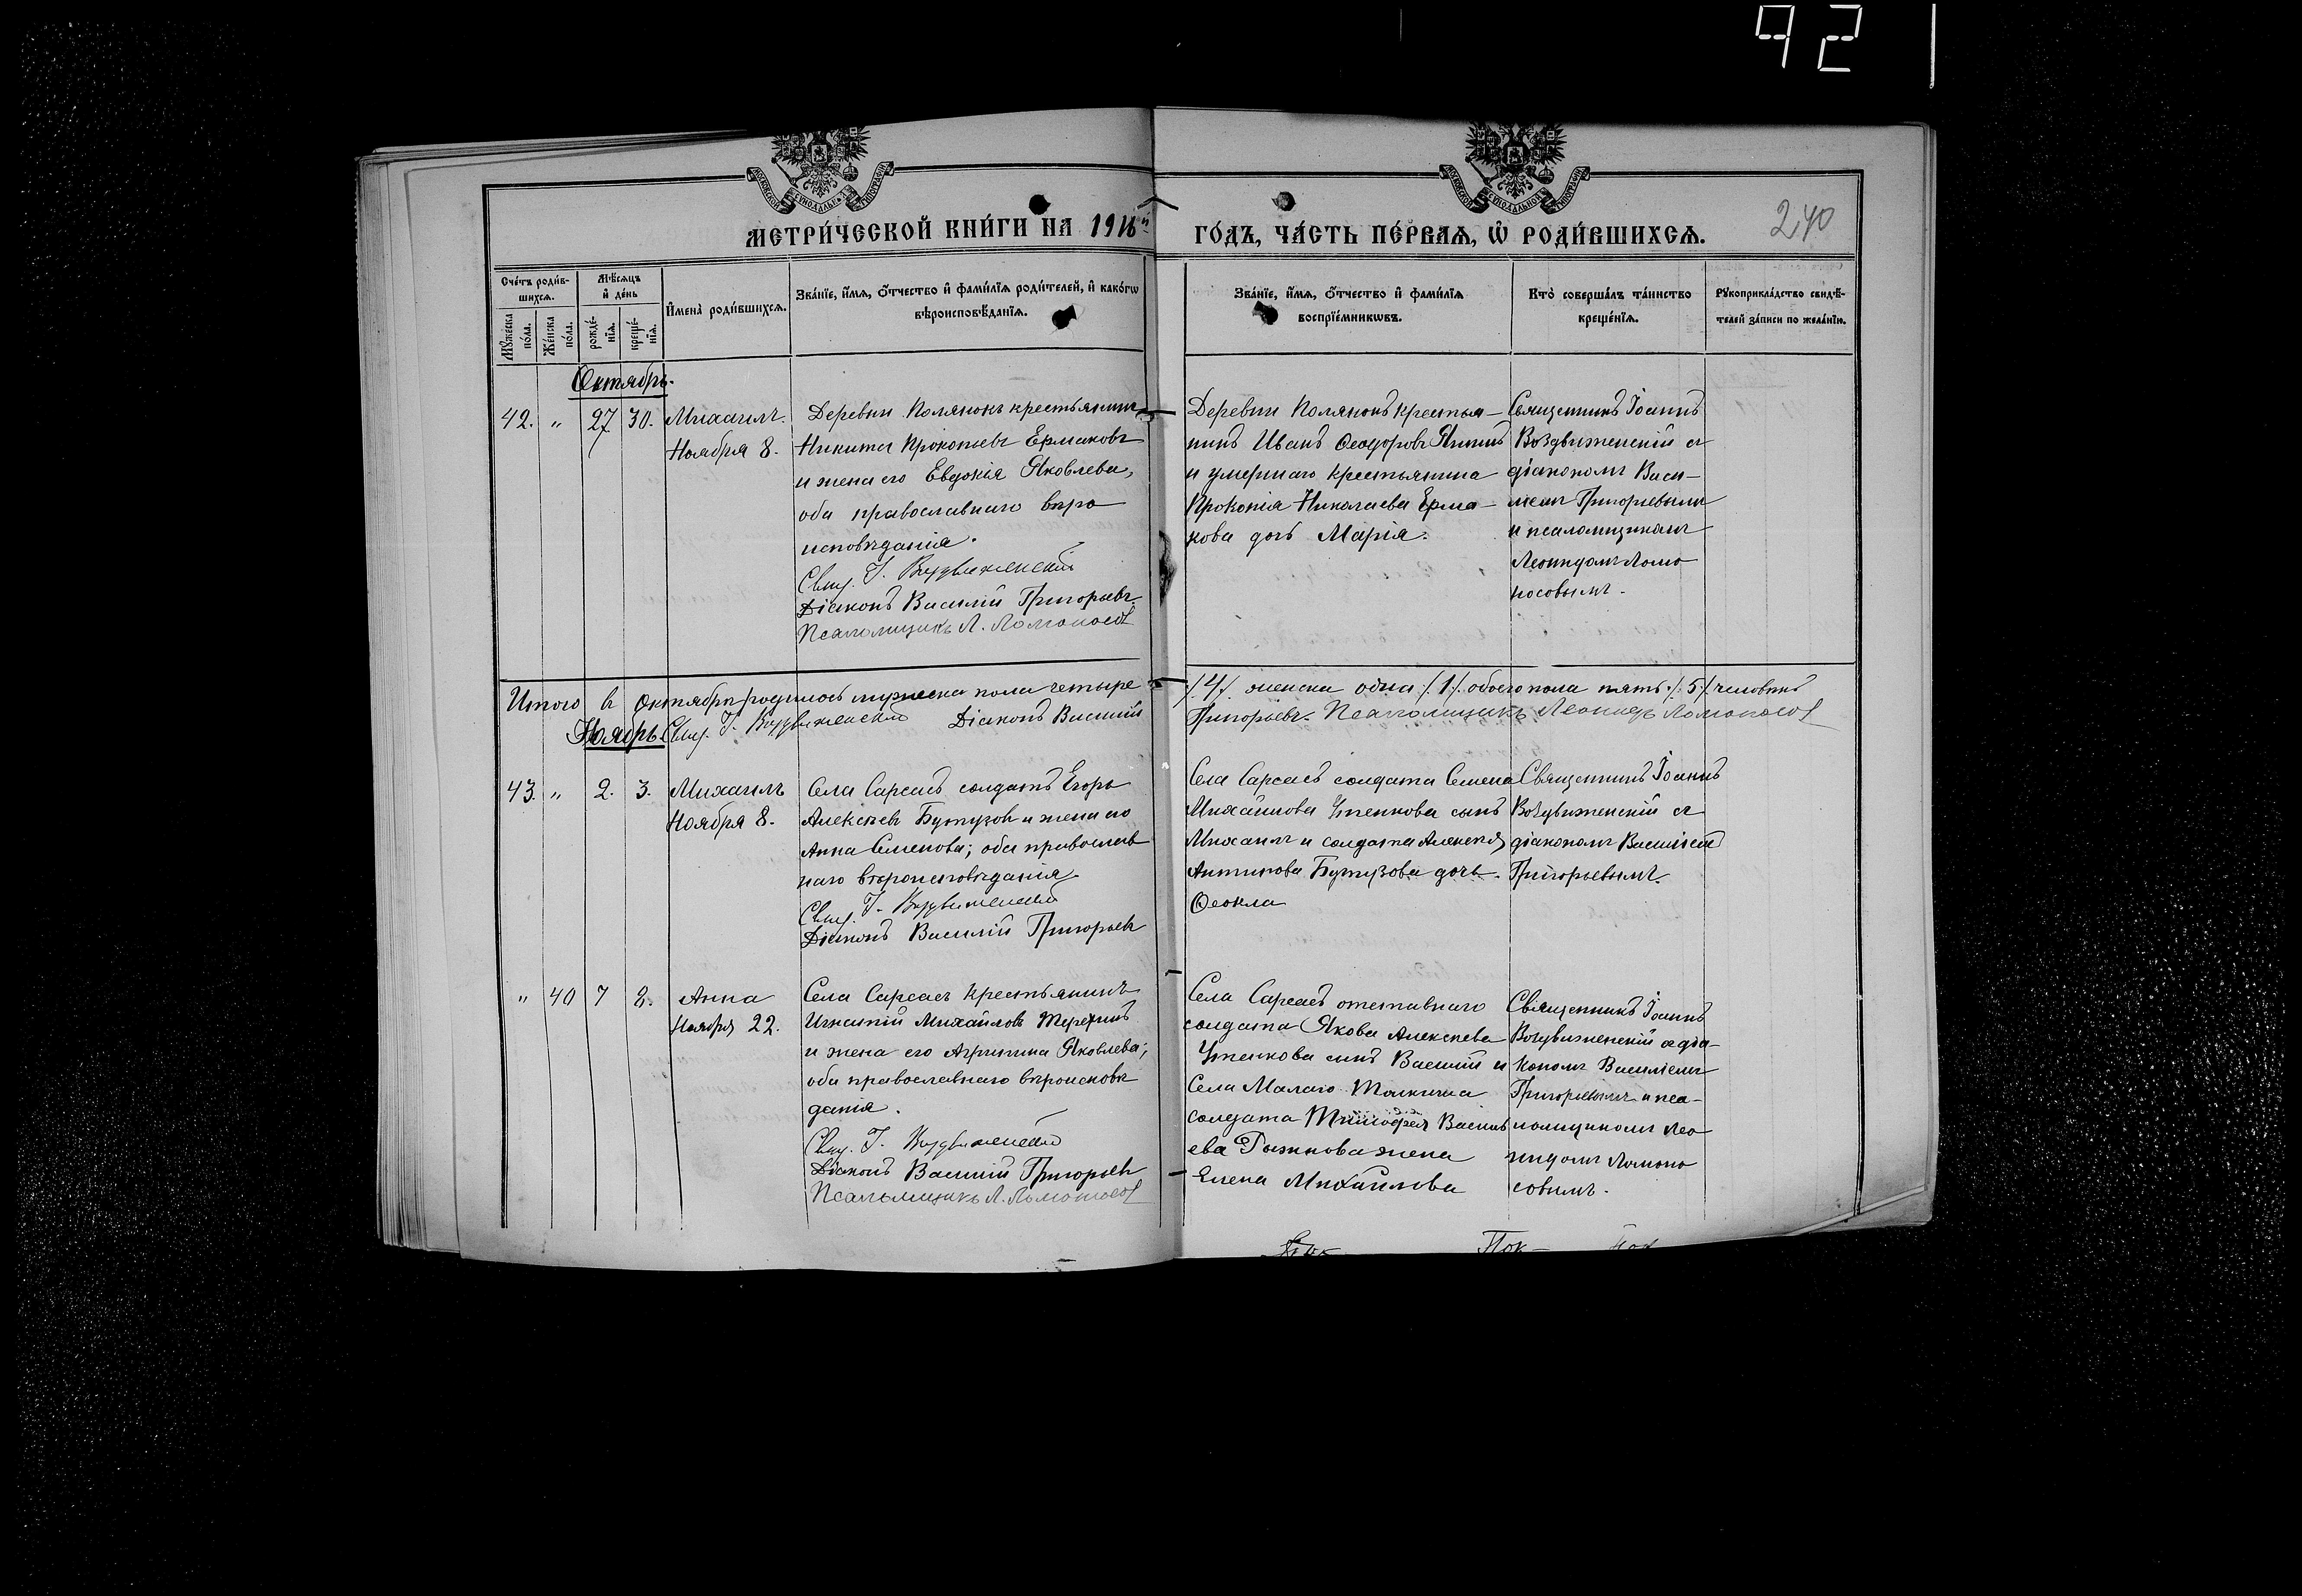 92
МЕТРИ́ЧЕСКОЙ КНИ́ГИ НА 1916й
ГО́ДЪ, ЧА́СТЬ ПЕ́РВАЯ, Ѡ РОДИ́ВШИХСЯ.
240
Сче́тъ роди́в-
шихся.
Мѣсяцъ
и де́нь
Мꙋ́жеска по́ла.
Же́нска по́ла.
рожде́-нїя.
креще́-нїя.
Имена̀ роди́вшихся.
Зва́нїе, и́мя, о́тчество и фами́лїя роди́телей, и како́гѡ
вѣроисповѣ́данїя.
Зва́нїе, и́мя, о́тчество и фами́лїя
воспрїе́мникѡвъ.
Кто̀ соверша́лъ та́инство
креще́нїя.
Рꙋкоприкла́дство свидѣ́-
телей за́писи по жела́нїю.
Октябрь.
42. " 27 30. Михаилъ.
Ноября 8.
Деревни Полянокъ крестьянинъ
Никита Прокопьевъ Ермаковъ
и жена его Евдокія Яковлева,
оба православнаго вѣро
исповѣданія.
Свящ. І. Воздвиженскій
Діаконъ Василій Григорьевъ
Псаломщикъ Л. Ломоносов
Деревни Полянокъ крестья-
нинъ Иванъ Ѳеодоровъ
и умершаго крестьянина
Прокопія Николаева Ерма-
кова дочь Марія.
Священникъ Іоаннъ
Воздвиженскій съ
діакономъ Васи-
ліемъ Григорьевымъ
и псаломщикомъ
Леонидомъ Ломо
носовымъ.
Итого въ Октябрѣ родилось мужеска пола четыре
/4/. женска одна /1/. обоего пола пять /5/ человѣкъ
Свящ. І. Воздвиженскій Діаконъ Василій
Григорьевъ. Псаломщикъ Леонидъ Ломоносов
Ноябрь.
43. " 2. 3. Михаилъ
Ноября 8.
Села Сарсасъ солдатъ Егоръ
Алексѣевъ Бутузовъ и жена его
Анна Семенова; оба православ
наго вѣроисповѣданія.
Свящ. І. Воздвиженскій
Діаконъ Василій Григорьевъ
Села Сарсасъ солдата Семена
Михайлова Утенкова сынъ
Михаилъ и солдата Алексѣя
Антипова Бутузова дочь
Ѳеокла
Священникъ Іоаннъ
Воздвиженскій съ
діакономъ Василіемъ
Григорьевымъ.
" 40 7 8. Анна
Ноября 22.
Села Сарсасъ крестьянинъ
Игнатій Михайловъ
и жена его Агрипина Яковлева;
оба православнаго вѣроисповѣ
данія.
Свящ. І. Воздвиженскій
Діаконъ Василій Григорьевъ
Псаломщикъ Л. Ломоносов
Села Сарсасъ отставнаго
солдата Якова Алексѣева
Утенкова сынъ Василій и
Села Малаго Толкиша
солдата Тимофея Василь
ева Рыжкова жена
Елена Михайлова
Священникъ Іоаннъ
Воздвиженскій съ діа-
кономъ Василіемъ
Григорьевымъ и пса-
ломщикомъ Лео
нидомъ Ломоно
совымъ.